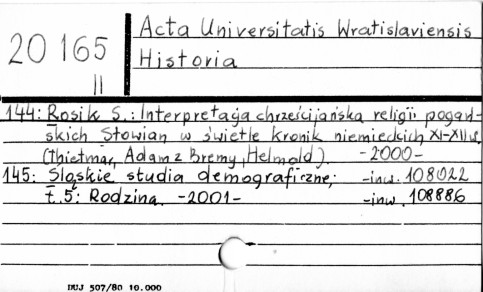 20 165
II
Acta Universitatis Wratislaviensis
Historia
144: Rosik S.: Interpretacja chrześcijańska religii pogań-
skich Słowian w świetle kronik niemieckich XI-XII w.
(Thietmar, Adam z Bremy, Helmold). -2000-
145: Śląskie studia demograficzne; -inw. 108022
t. 5: Rodzina. -2001- -inw. 108886
DUJ 507/80 10.000